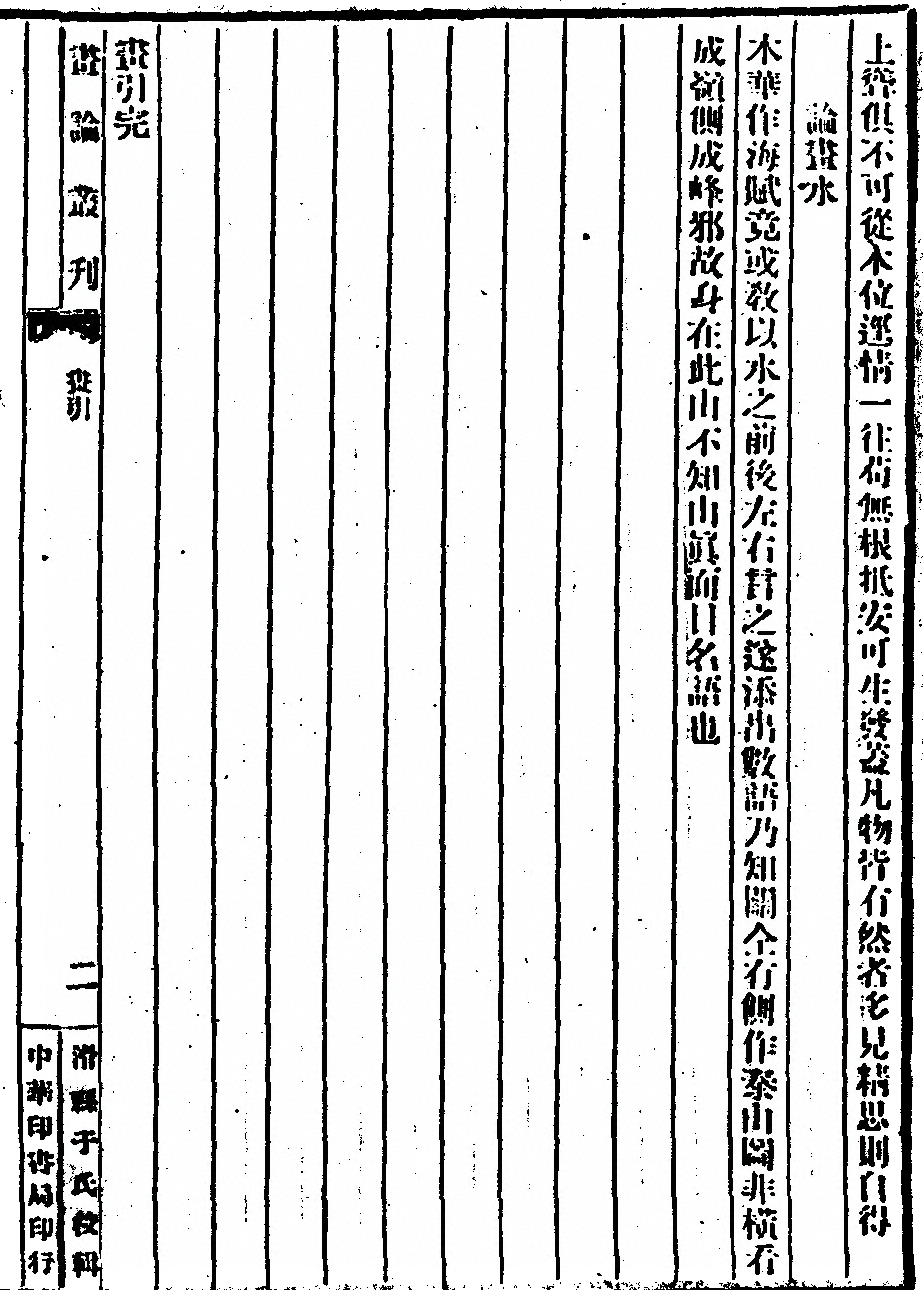 上聳俱不可從本位逕情一往苟無根抵安可生發蓋凡物皆有然者多見精思則自得
論畫水
木華作海賦竟或教以水之前後左右言之遂添出數語乃知關仝有側作泰山圖非橫看
成嶺側成峰邪故身在此山不知山真面目名語也
畫引完
畫論叢刊
畫引
二
滑縣于氏校輯
中華印書局印行